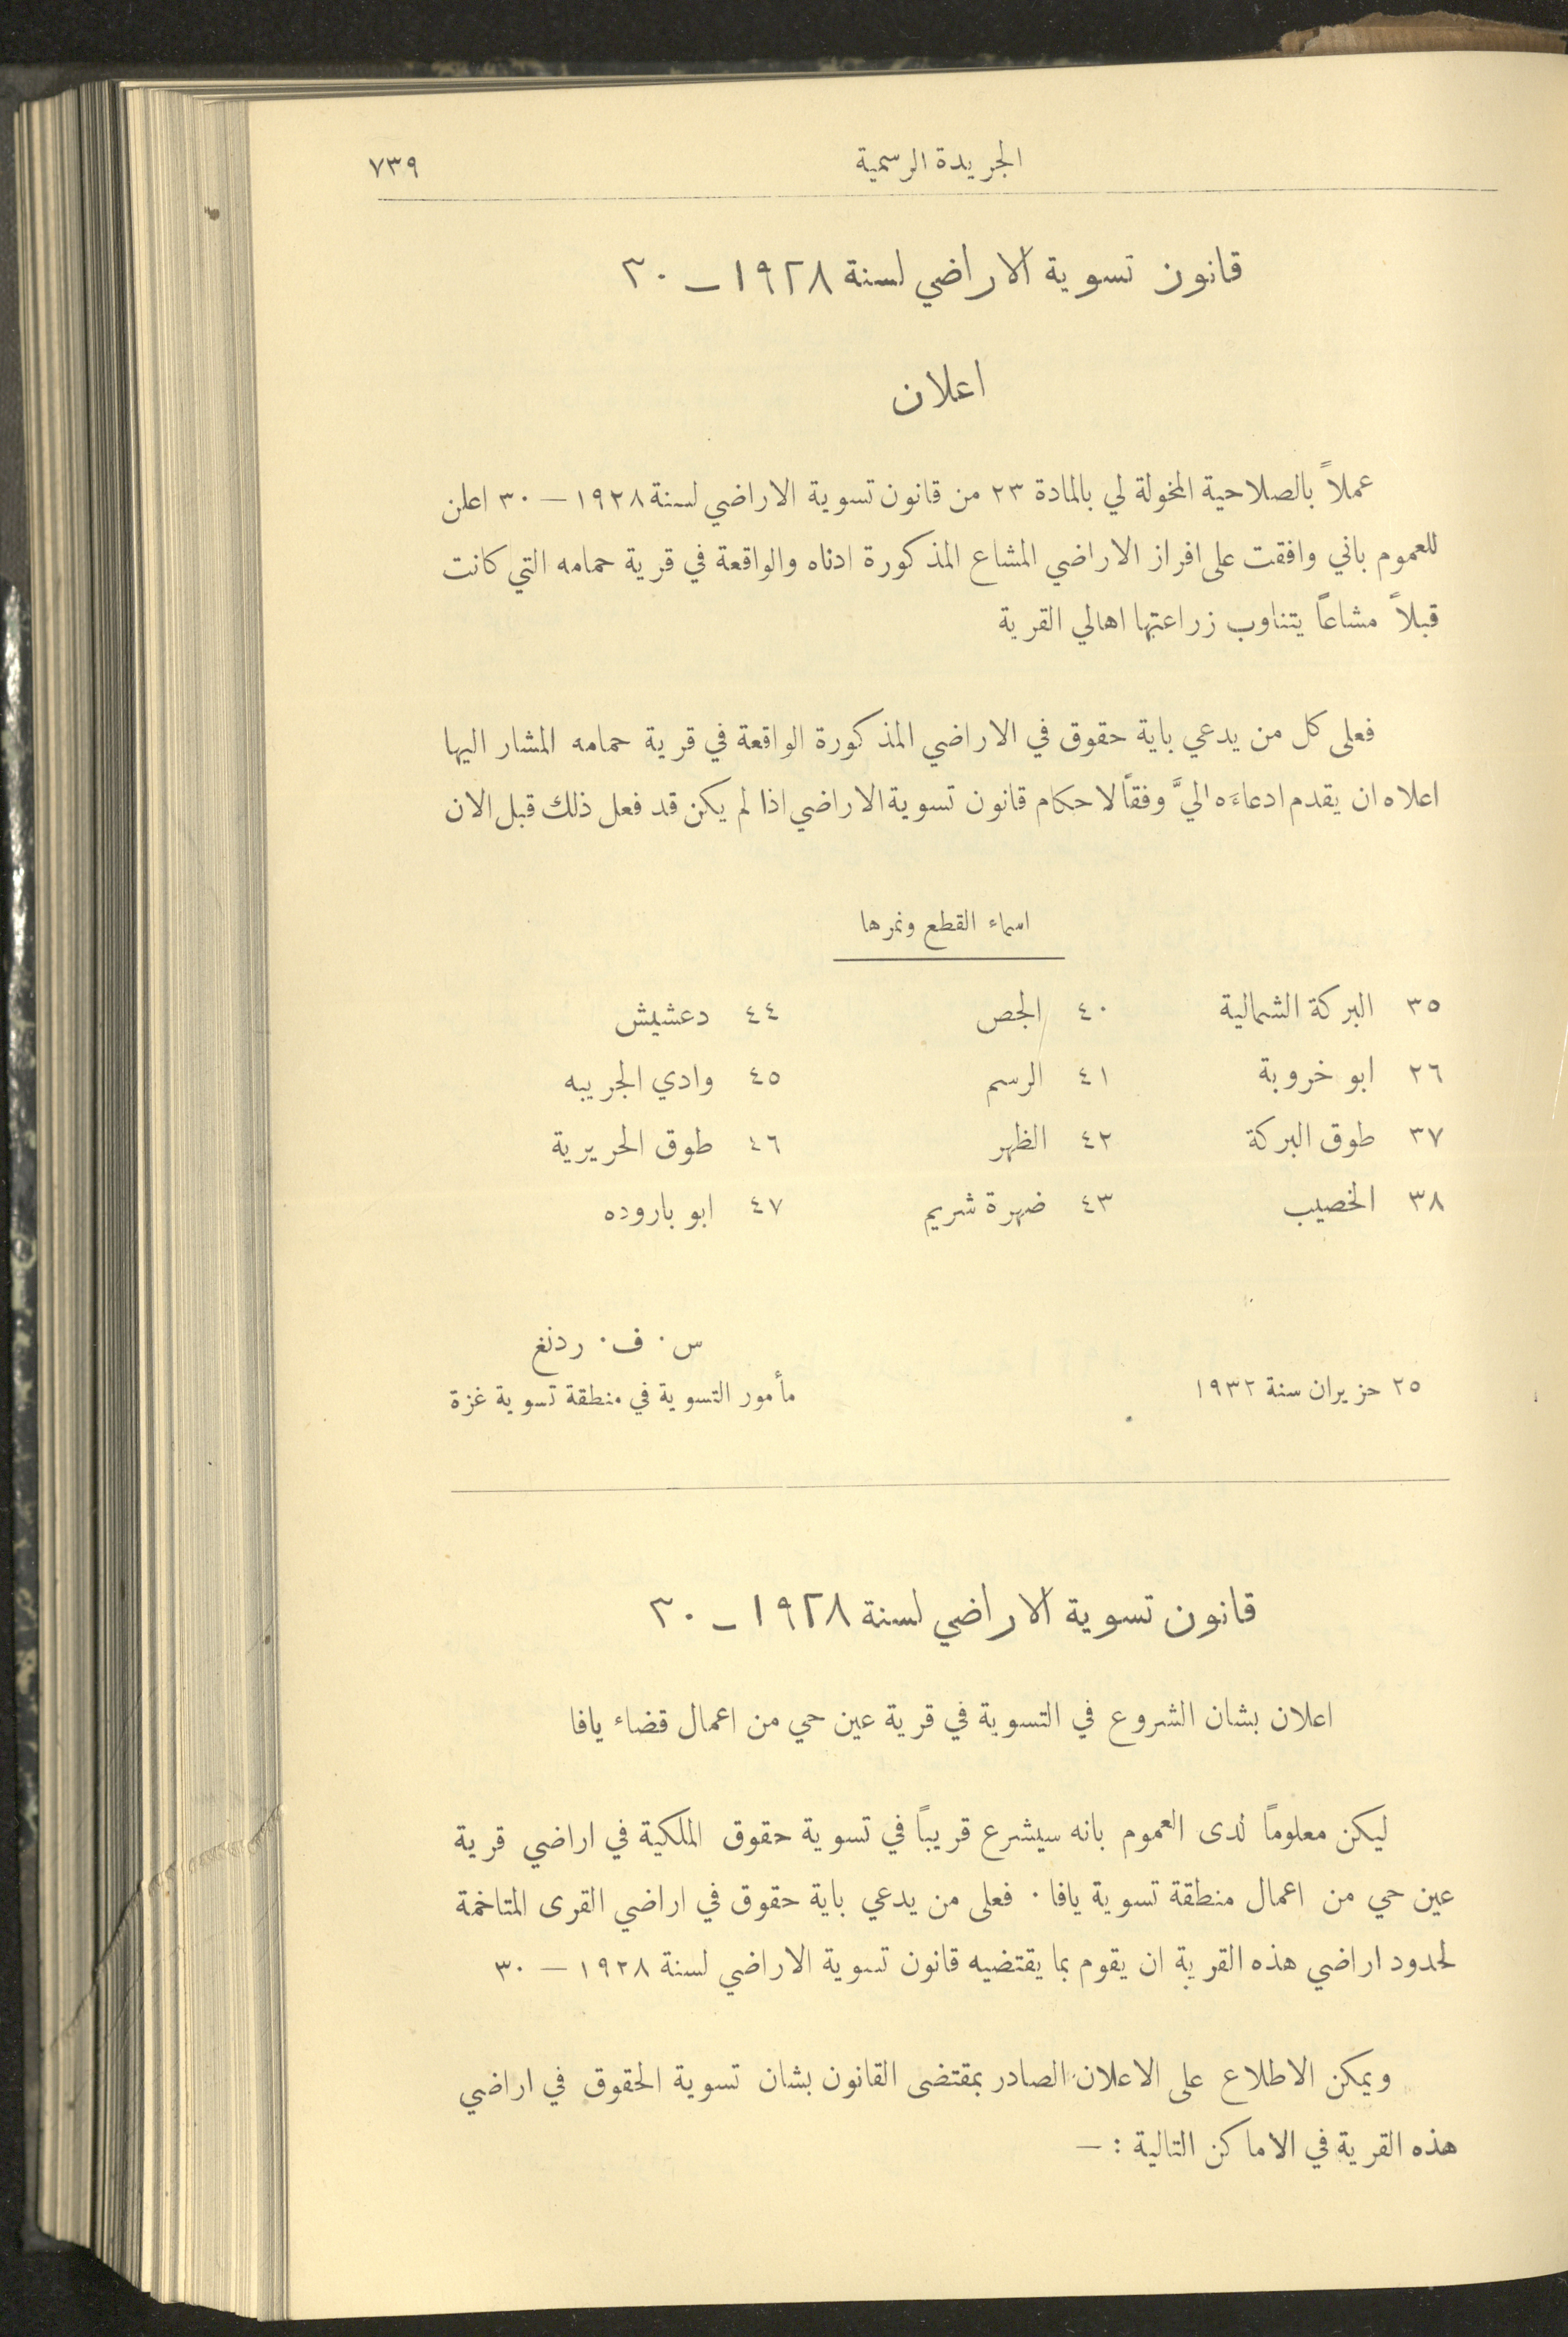 الجريدة الرسمية ٧٣٩
قانون تسوية الاراضي لسنة ١٩٢٨ - ٣٠
اعلان
عملاً بالصلاحية المخولة لي بالمادة ٢٣ من قانون تسوية الاراضي لسنة ١٩٢٨ — ٣٠ اعلن
للعموم باني وافقت على افراز الاراضي المشاع المذكورة ادناه والواقعة في قرية حمامه التي كانت
قبلاً مشاعاً يتناوب زراعتها اهالي القرية
فعلى كل من يدعي باية حقوق في الاراضي المذكورة الواقعة في قرية حمامه المشار اليها
اعلاه ان يقدم ادعاءَه اليَّ وفقاً لاحكام قانون تسوية الاراضي اذا لم يكن قد فعل ذلك قبل الان
اسماء القطع ونمرها
٣٥ البركة الشمالية ٤٠ الجص ٤٤ دعشيش
٢٦ ابو خروبة ٤١ الرسم ٤٥ وادي الجريبه
٣٧ طوق البركة ٤٢ الظهر ٤٦ طوق الحريرية
٣٨ الخصيب ٤٣ ضهرة شريم ٤٧ ابو باروده
س. ف. ردنغ
٢٥ حزيران سنة ١٩٣٢ مأمور التسوية في منطقة تسوية غزة
قانون تسوية الاراضي لسنة ١٩٢٨ - ٣٠
اعلان بشان الشروع في التسوية في قرية عين حي من اعمال قضاء يافا
ليكن معلوماً لدى العموم بانه سيشرع قريباً في تسوية حقوق الملكية في اراضي قرية
عين حي من اعمال منطقة تسوية يافا. فعلى من يدعي باية حقوق في اراضي القرى المتاخمة
لحدود اراضي هذه القرية ان يقوم بما يقتضيه قانون تسوية الاراضي لسنة ١٩٢٨ — ٣٠
ويمكن الاطلاع على الاعلان الصادر بمقتضى القانون بشان تسوية الحقوق في اراضي
هذه القرية في الاماكن التالية : —